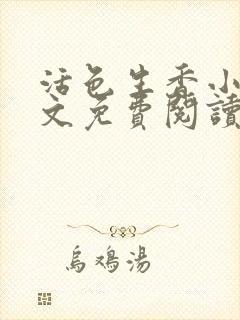 活色生香小
文免費閱讀
烏鳮湯